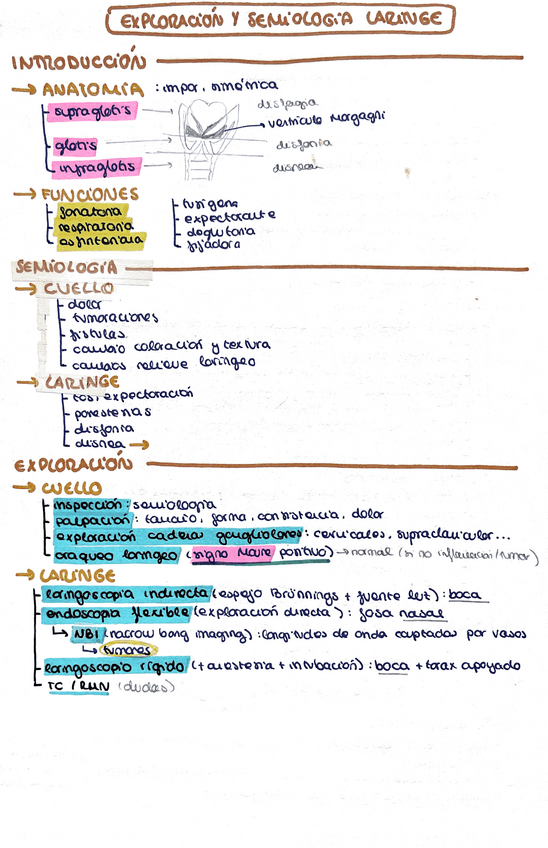 EXPLORACIÓN Y SEMIOLOGÍA LARINGE
INTRODUCCIÓN
→ ANATOMÍA : impar, simétrica
supraglotis → disfagia
→ ventrículo Morgagni
glotis → disfonía
infraglotis → disnea
→ FUNCIONES
fonatoria
respiratoria
esfinteriana
tusígena
expectorante
deglutoria
fijadora
SEMIOLOGÍA
→ CUELLO
dolor
tumoraciones
fístulas
cambio coloración y textura
cambios relieve laríngeo
→ LARINGE
tos, expectoración
parestesias
disfonía
disnea →
EXPLORACIÓN
→ CUELLO
inspección: semiología
palpación: tamaño, forma, consistencia, dolor
exploración cadena ganglionares: cervicales, supraclavicular...
craqueo laríngeo (signo Moure positivo) → normal (si no inflamación/tumor)
→ LARINGE
laringoscopia indirecta (espejo Brünnings + fuente luz): boca
endoscopia flexible (exploración directa): fosa nasal
↳ NBI (narrow bang imaging): longitudes de onda captadas por vasos
↳ tumores
laringoscopio rígido (+ anestesia + intubación): boca + tórax apoyado
TC / RMN (dudas)